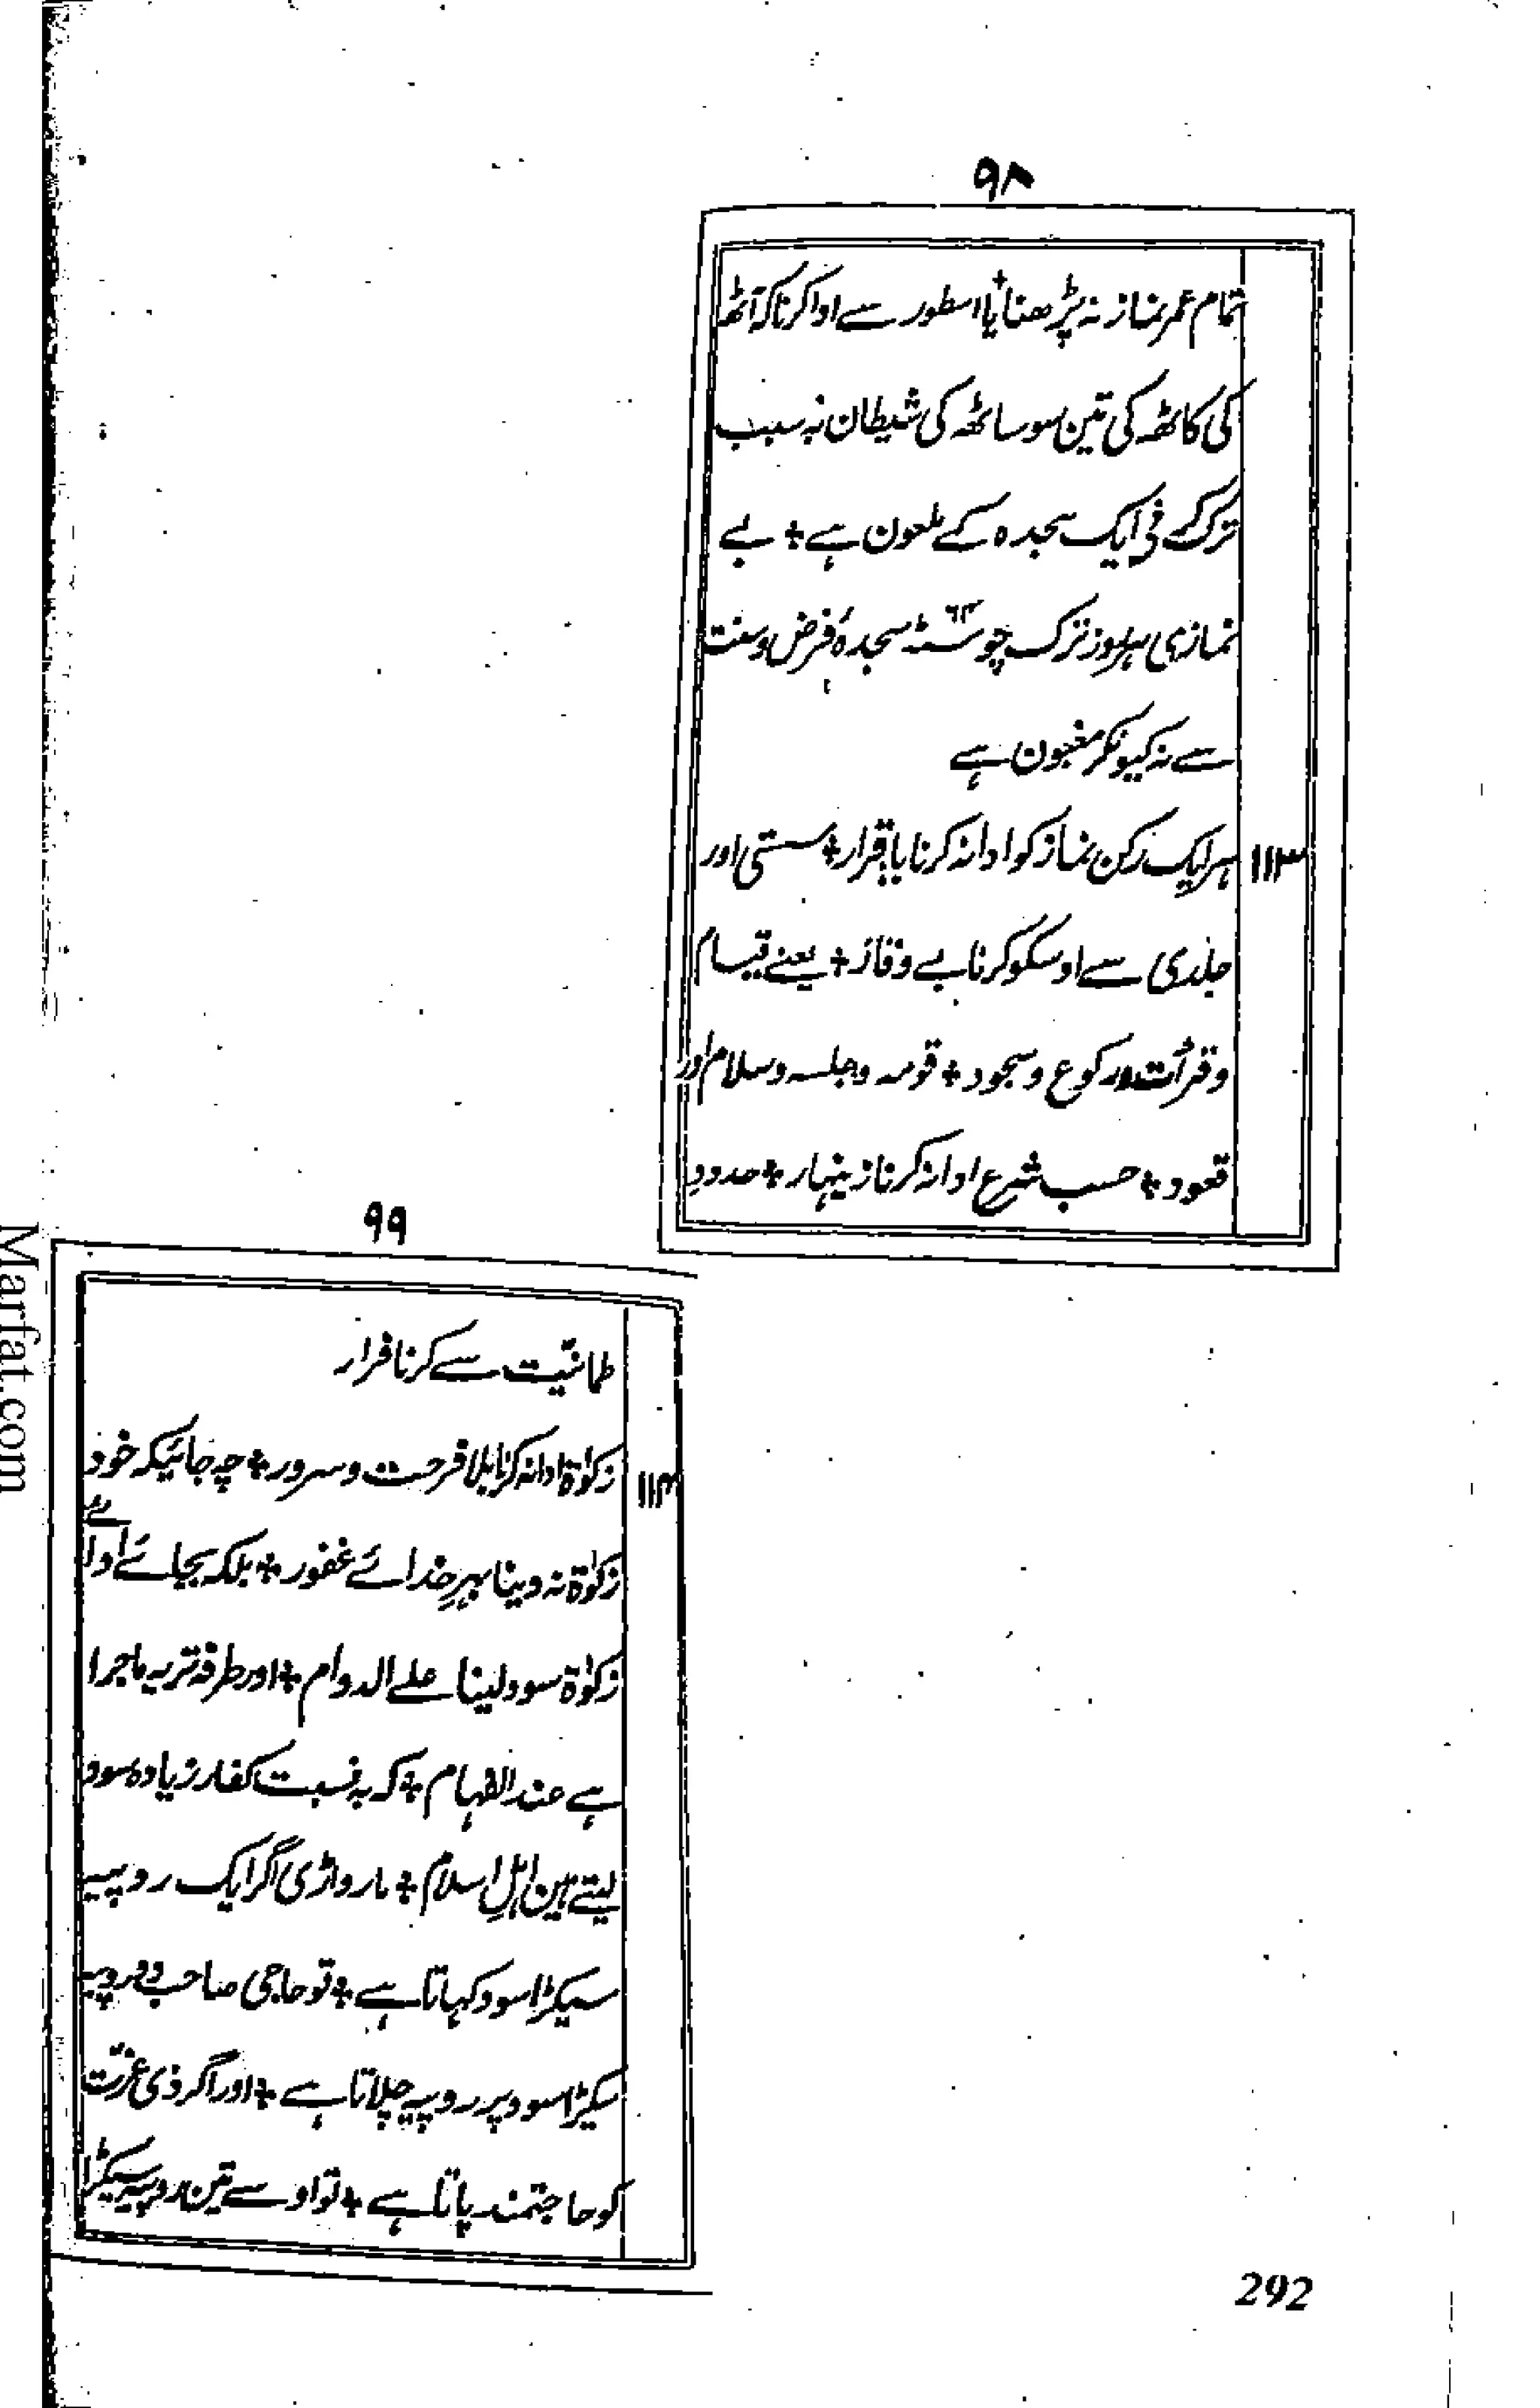 ۹۸
تمام عمر نماز نہ پڑھنا یا اسطور سے ادا کرنا کہ آٹھ
کی کاٹھ کی تین سو ساٹھ کی شیطان بہ سبب
ترک فی ایک سجدہ کے ملعون ہے + بے
نمازی ہر روز ترک چوسٹھ ۶۴ سجدۂ فرض و سنت
سے نہ کیونکر مغبون ہے
۱۱۳ ہر ایک رکن نماز کو ادا نہ کرنا باقرار + سستی اور
جلدی سے اوسکو کرنا بے وقار + یعنے قیام
و قرأت و رکوع و سجود + قومہ و جلسہ و سلام اور
قعود + حسب شرع ادا نہ کرنا زینہار + حدود
۹۹
طمانیت سے کرنا فرار
۱۱۴ زکوٰة ادا نہ کرنا بلا فرحت و سرور + چہ جائیکہ خود
زکوٰة نہ دینا بہرِ خدائے غفور + بلکہ بجائے ادائے
زکوٰة سود لینا علے الدوام + اور طرفہ تر یہ ماجرا
ہے عند الفہام + کہ بہ نسبت کفار زیادہ سود
لیتے ہین اہلِ اسلام + مارواڑی اگر ایک روپیہ
سیکڑا سود کہاتا ہے + تو حاجی صاحب دو روپیہ
سیکڑا سود پر روپیہ چلاتا ہے + اور اگر ذی عزّت
کو حاجتمند پاتا ہے + تو اوسے تین روپیہ سیکڑا
292
Marfat.com